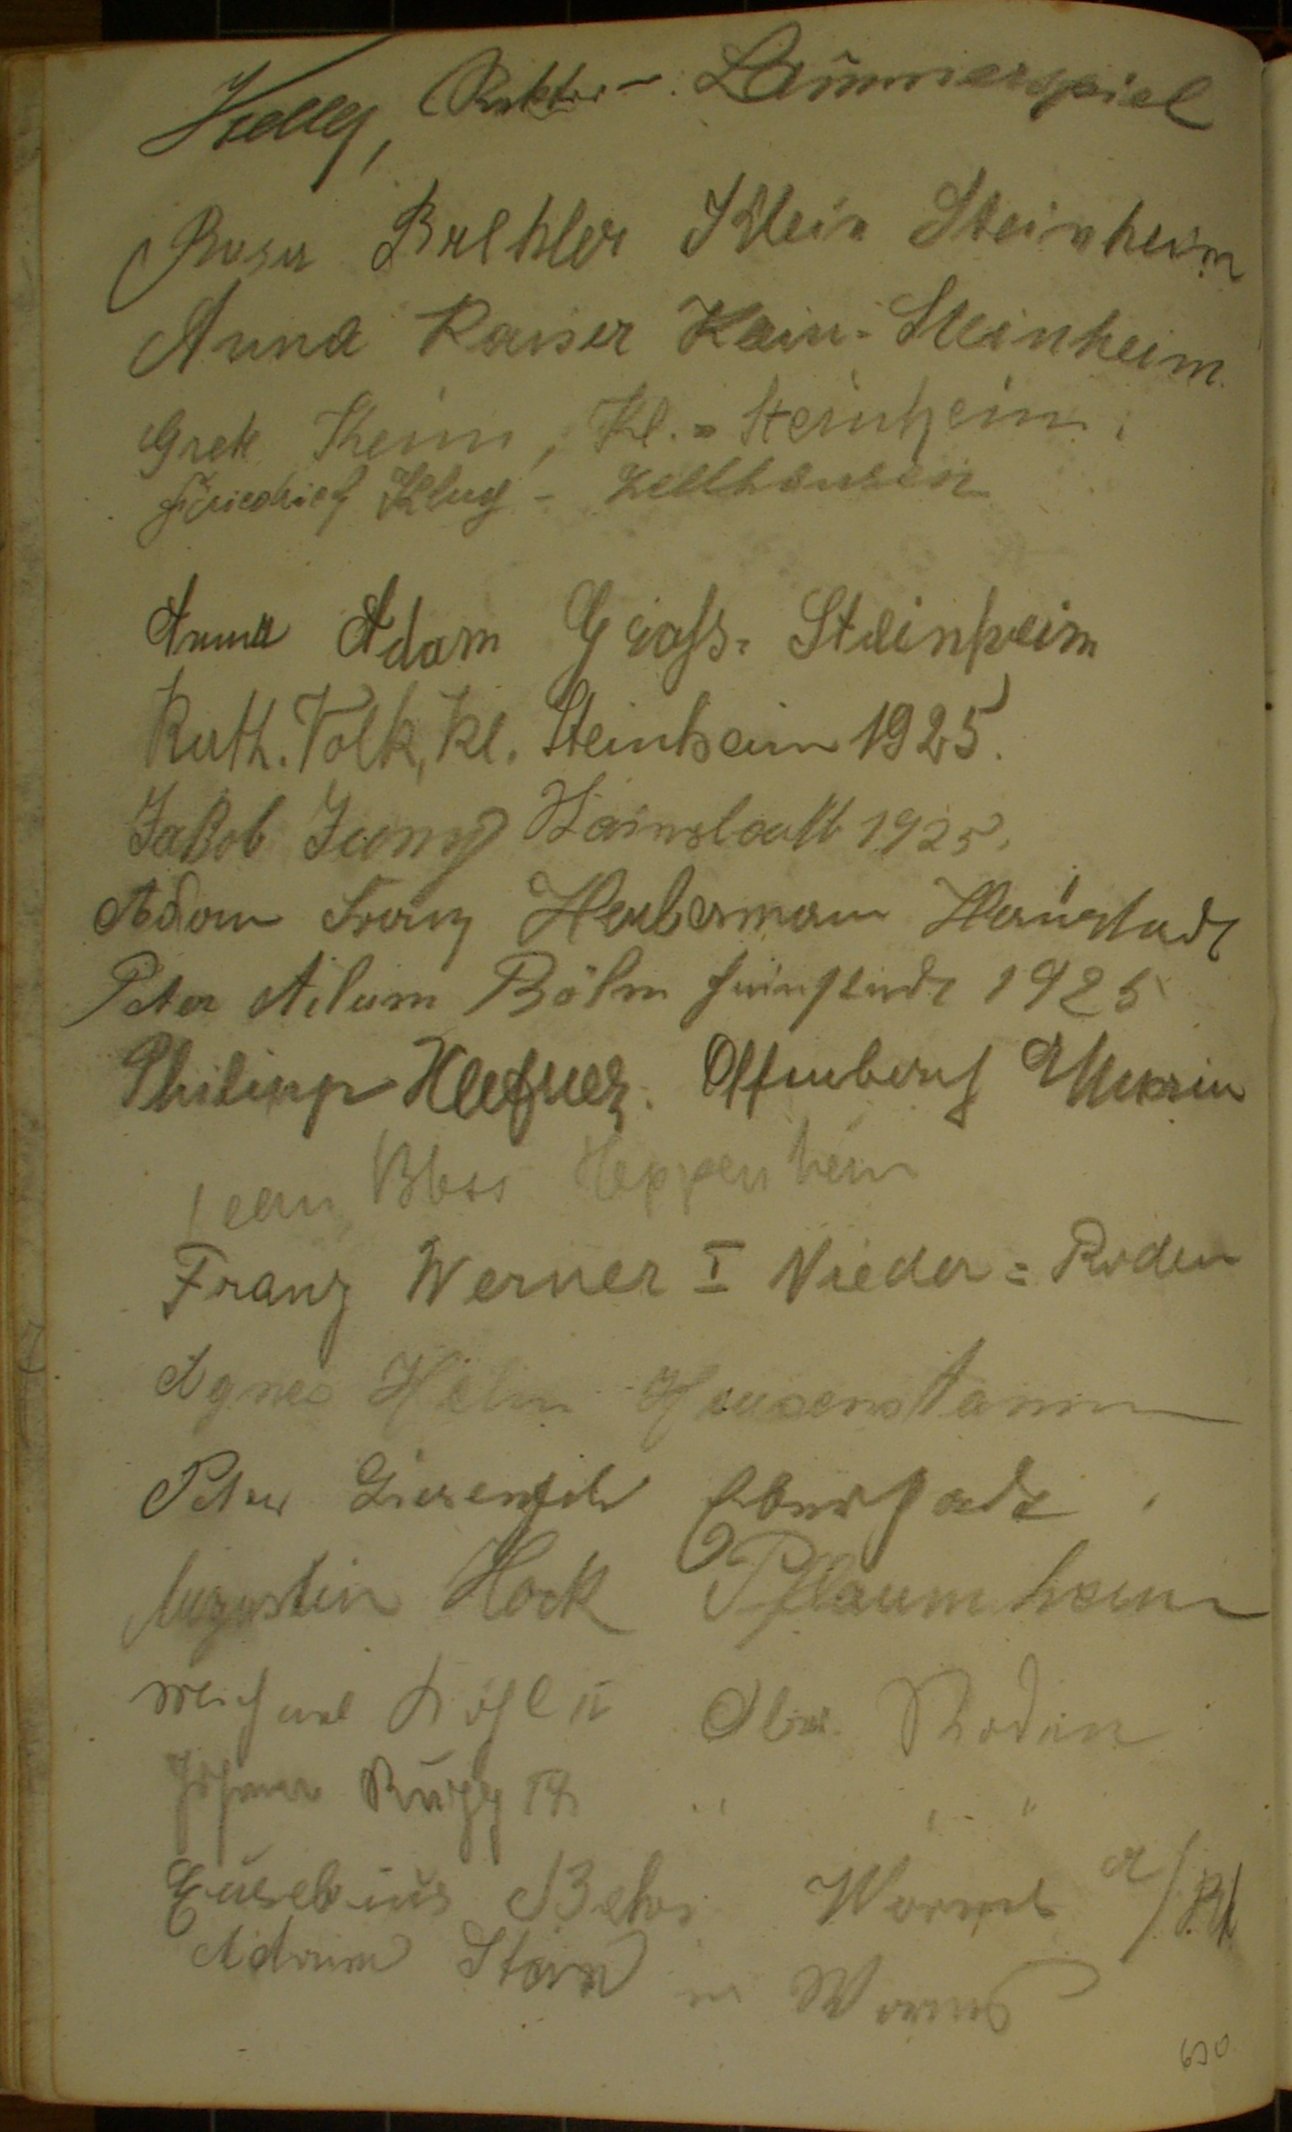 Kelly, Rektor - Lämmerspiel
Rosa Klein Steinheim
Anna Kaiser Klein-Steinheim
Grete Keim, Kl.-Steinheim
Friedrich Klug - Zellhausen
Anna Adam Groß-Steinheim
Kath. Volk, Kl. Steinheim 1925.
Jakob Jung Hainstadt 1925.
Adam Franz Hainstadt
Peter Adam Böhm Hainstadt 1925
Philipp Offenbach Main
Jean Heppenheim
Franz Werner I Nieder=Roden
Agnes Helm Heusenstamm
Peter Eberstadt
Augustin Hock Pflaumheim
Michael II Ober Roden
Johann " "
Eusebius Worms a/Rh
Adam Stein Worms
630